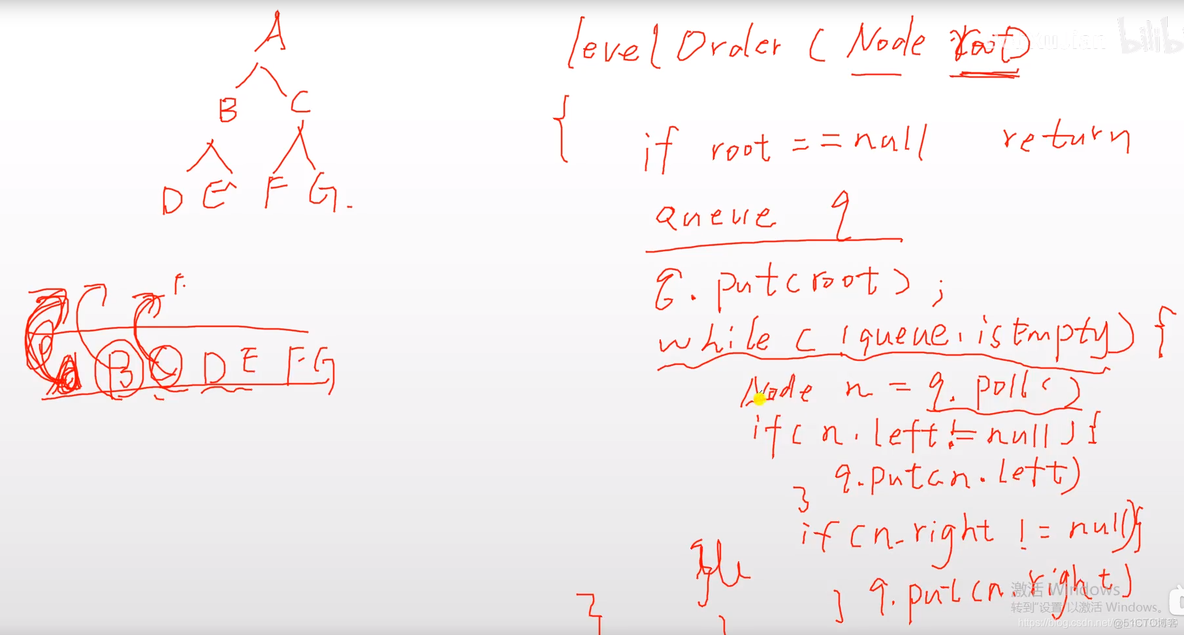 A
B C
D E F G.
B C D E F G
level Order ( Node root )
{
if root == null return
queue q
q. put(root) ;
while ( !queue. isEmpty) {
Node n = q. poll()
if( n. left != null ) {
q.put(n. left)
}
if(n. right != null) {
q. put(n. right)
}
}
}
bilibi
激活 Windows
转到"设置"以激活 Windows。
@51CTO博客